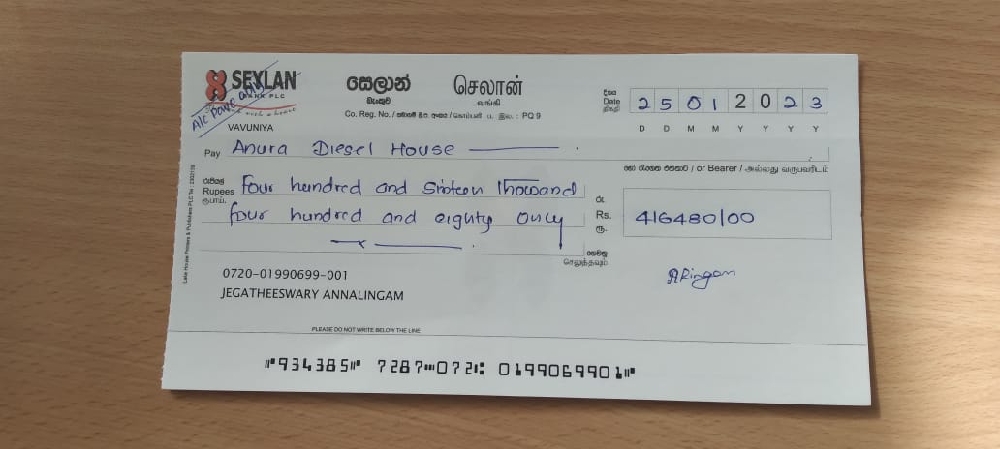 SEYLAN
BANK PLC
සෙලාන් செலான்
බැංකුව வங்கி
Co. Reg. No./ සමාගම් ලි. අංකය /கொம்பனி ப. இல. : PQ 9
A/C Payee only
VAVUNIYA
දිනය
Date
திகதி
2 5 0 1 2 0 2 3
D D M M Y Y Y Y
Pay Anura Diesel House
හෝ රැගෙන එන්නාට / or Bearer / அல்லது வருபவரிடம்
රුපියල්
Rupees Four hundred and Sixteen Thousand
ரூபாய்
four hundred and eighty only
රු.
Rs. 416480/00
ரூ.
ගෙවනු
செலுத்தவும்
0720-01990699-001
JEGATHEESWARY ANNALINGAM
PLEASE DO NOT WRITE BELOW THE LINE
⑈934385⑈ 7287⑉072⑆ 0199069901⑈